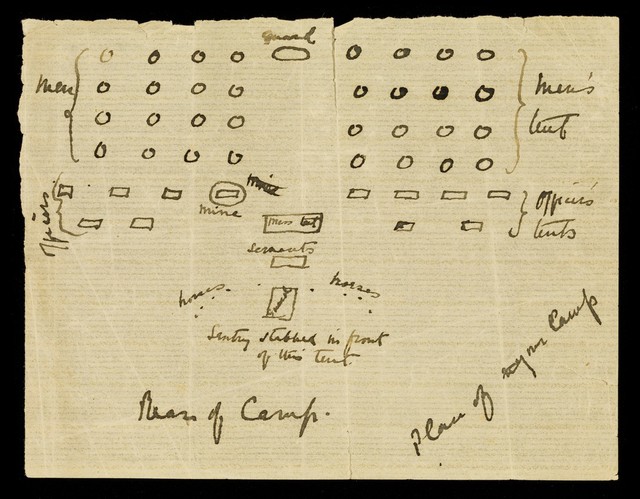 guard
men
men's
tent
officers
mine
mine
officer's
tents
mess tent
servants
horses
horses
guard
Sentry stabbed in front
of this tent
Rear of Camp.
Plan of my our Camp